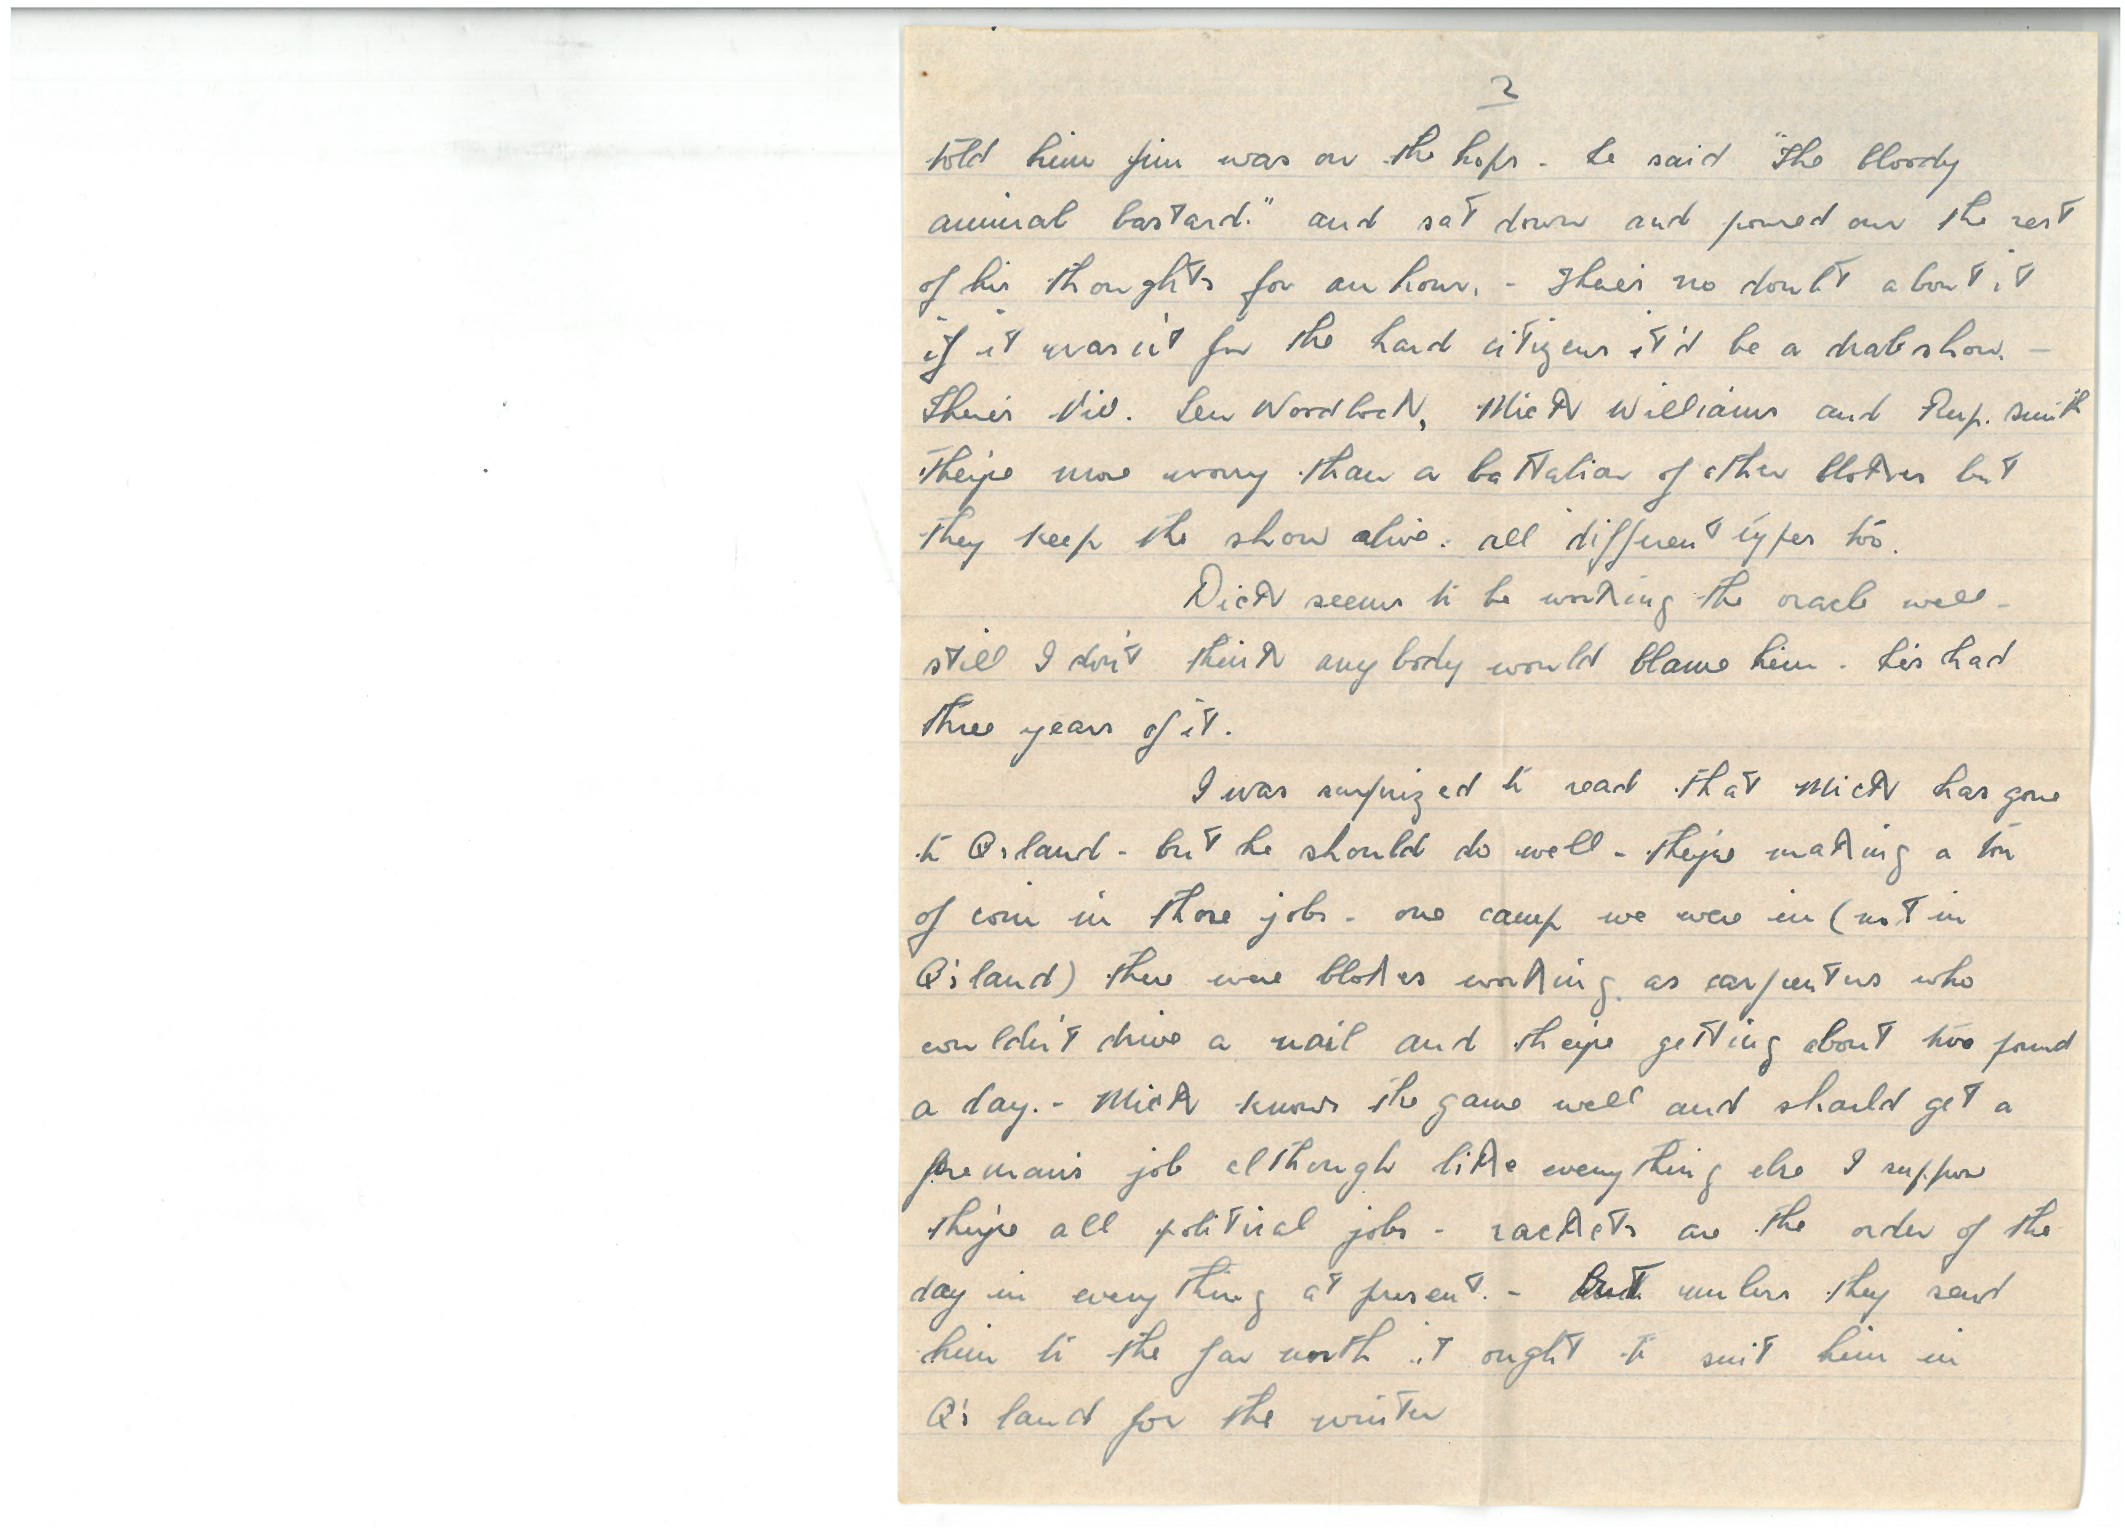 2
told him Jim was on the hops - he said "The bloody
animal bastard." and sat down and poured out the rest
of his thoughts for an hour. - There's no doubt about it
if it wasn't for the hard citizens it'd be a drab show. -
There's Viv. Len Woodlock, Mick Williams and Rup. Smith
they're more worry than a battalion of other blokes but
they keep the show alive. all different types too.
Dick seems to be working the oracle well -
still I don't think anybody would blame him - he's had
three years of it.
I was surprized to read that Mick has gone
to Q'sland - but he should do well - they're making a ton
of coin in those jobs - one camp we were in (not in
Q'sland) there were blokes working as carpenters who
couldn't drive a nail and they're getting about two pound
a day. - Mick knows the game well and should get a
foreman's job although like everything else I suppose
they're all political jobs - rackets are the order of the
day in everything at present. - But unless they send
him to the far north it ought to suit him in
Q'sland for the winter